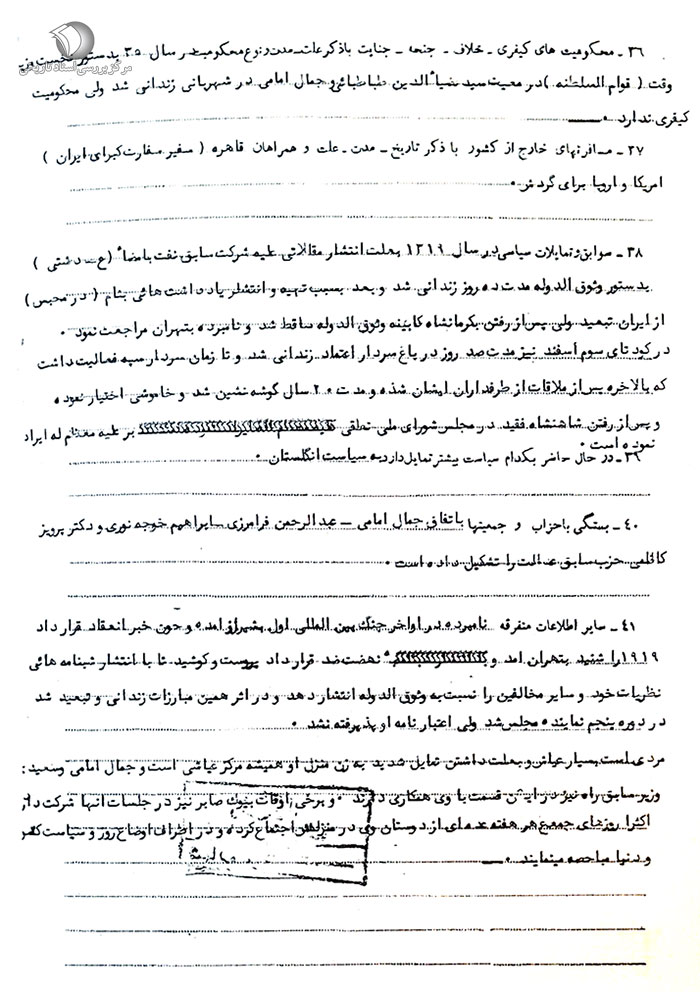 مرکز بررسی اسناد تاریخی
۳۶ ـ محکومیت های کیفری ـ خلاف ـ جنحه ـ جنایت با ذکر علت ـ مدت و نوع محکومیت در سال ۲۵ بدستور نخست وزیر
وقت ( قوام السلطنه )در معیت سید ضیاءالدین طباطبائی و جمال امامی در شهربانی زندانی شد ولی محکومیت
کیفری ندارد ۰
۳۷ ـ مسافرتهای خارج از کشور با ذکر تاریخ ـ مدت ـ علت و همراهان قاهره ( سفیر سفارت کبرای ایران )
امریکا و اروپا برای گردش ۰
۳۸ ـ سوابق و تمایلات سیاسی در سال ۱۲۱۹ بعلت انتشار مقالاتی علیه شرکت سابق نفت بامضاء (ع ـ دشتی )
بدستور وثوق الدوله مدت ده روز زندانی شد و بعد بسبب تهیه و انتشار یادداشت هائی بنام ( در محبس )
از ایران تبعید ولی پس از رفتن بکرمانشاه کابینه وثوق الدوله ساقط شد و نامبرده بتهران مراجعت نمود ۰
در کودتای سوم اسفند نیز مدت صد روز در باغ سردار اعتماد زندانی شد و تا زمان سردار سپه فعالیت داشت
که بالاخره پس از ملاقات از طرفداران ایشان شده و مدت ۲۰ سال گوشه نشین شد و خاموشی اختیار نموده
و پس از رفتن شاهنشاه فقید در مجلس شورای ملی نطقی بر علیه معظم له ایراد
نموده است ۰
۳۹ ـ در حال حاضر بکدام سیاست بیشتر تمایل دارد به سیاست انگلستان ۰
۴۰ ـ بستگی باحزاب و جمعیتها باتفاق جمال امامی ـ عبدالرحمن فرامرزی ـ ابراهیم خوجه نوری و دکتر پرویز
کاظمی حزب سابق عدالت را تشکیل داده است ۰
۴۱ ـ سایر اطلاعات متفرقه نامبرده در اواخر جنگ بین المللی اول بشیراز امده و چون خبر انعقاد قرارداد
۱۹۱۹ را شنید بتهران امد و نهضت ضد قرارداد پیوست و کوشید تا با انتشار شبنامه هائی
نظریات خود و سایر مخالفین را نسبت به وثوق الدوله انتشار دهد و در اثر همین مبارزات زندانی و تبعید شد
در دوره پنجم نماینده مجلس شد ولی اعتبار نامه او پذیرفته نشد ۰
مردی است بسیار عیاش و بعلت داشتن تمایل شدید به زن منزل او همیشه مرکز عیاشی است و جمال امامی و سعید
وزیر سابق راه نیز در این قسمت با وی همکاری دارند ۰ و برخی اوقات بنیوک صابر نیز در جلسات انها شرکت دارد
اکثرا روزهای جمعه هر هفته عده ای از دوستان وی در منزلش اجتماع کرده و در اطراف اوضاع روز و سیاست کشور
و دنیا مباحصه مینمایند ۰